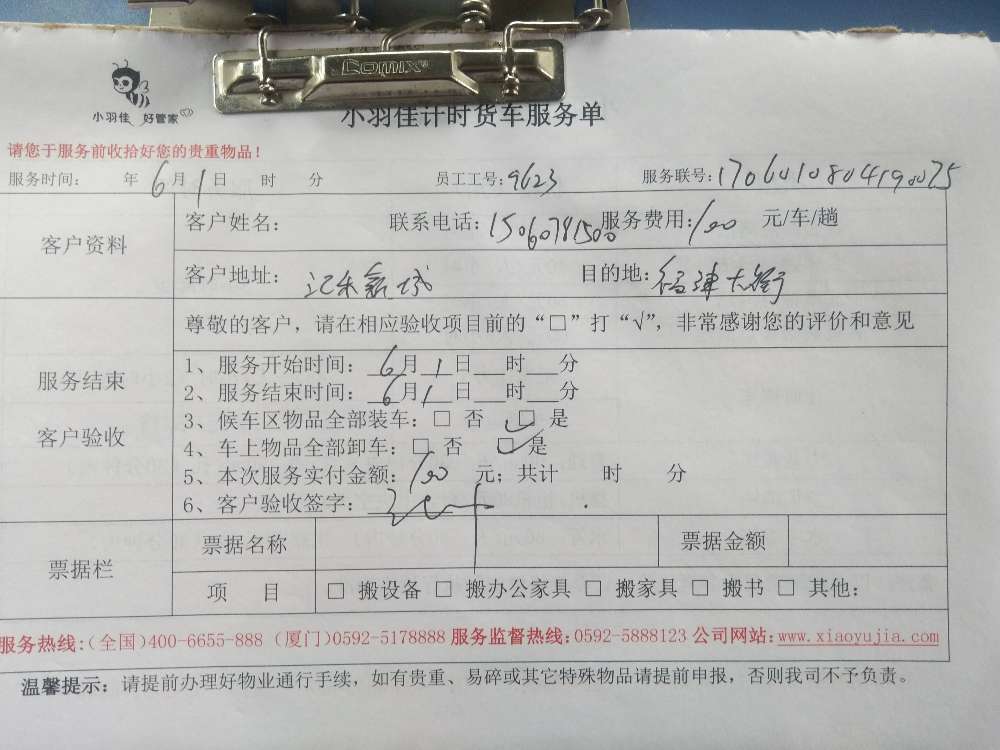 Comix
小羽佳 好管家
小羽佳计时货车服务单
请您于服务前收拾好您的贵重物品！
服务时间： 年6月1日 时 分 员工工号：9623 服务联号：1706010804190075
客户资料
客户姓名： 联系电话：15060781500 服务费用：100 元/车/趟
客户地址： 目的地：大街
尊敬的客户，请在相应验收项目前的“□”打“√”，非常感谢您的评价和意见
服务结束
客户验收
1、服务开始时间：6月1日___时___分
2、服务结束时间：6月1日___时___分
3、候车区物品全部装车：□ 否 ☑ 是
4、车上物品全部卸车：□ 否 ☑ 是
5、本次服务实付金额：100 元；共计 时 分
6、客户验收签字：
票据栏
票据名称 票据金额
项 目 □ 搬设备 □ 搬办公家具 □ 搬家具 □ 搬书 □ 其他：
服务热线：(全国)400-6655-888 (厦门)0592-5178888 服务监督热线：0592-5888123 公司网站：www.xiaoyujia.com
温馨提示：请提前办理好物业通行手续，如有贵重、易碎或其它特殊物品请提前申报，否则我司不予负责。